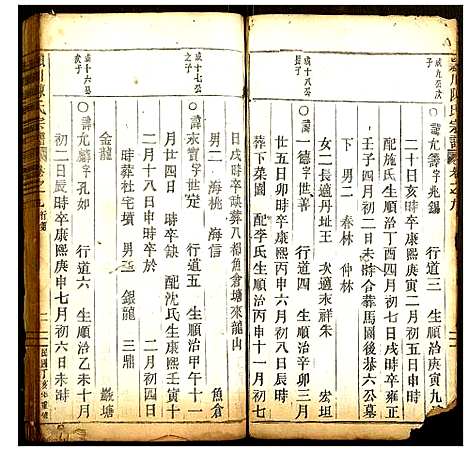 潁川陳氏宗譜 卷之九
成九公次子
○諱允籌字兆錫 行道三 生順治庚寅九
月十二日亥時卒康熙庚寅二月初五日申時
配施氏生順治丁酉四月初七日戌時卒雍正
壬子四月初二日未時合葬馬園後恭六公墓
下 男二 春林 仲林
女二長適丹址王 次適末祥朱 宏坦
成十八公子
○諱一德字世善 行道四 生順治辛卯三月
廿五日卯時卒康熙丙申六月初八日辰時
葬下菜園 配李氏生順治丙申十一月初七
日戌時卒缺葬八都魚倉塘來龍山
男二 海桃 海信 魚倉
成十七公之子
○諱永寶字世定 行道五 生順治甲午十一
月廿四日 時卒缺 配沈氏生康熙壬寅十
二月十八日申時卒缺於 二月初四日
時葬社宅墳 男三 銀龍 三鼎
金龍 嚴塘
成十六公次子
○諱允麟字孔如 行道六 生順治乙未十月
初二日辰時卒康熙庚申七月初六日未時
潁川陳氏宗譜 卷之九
民國丁亥年重修